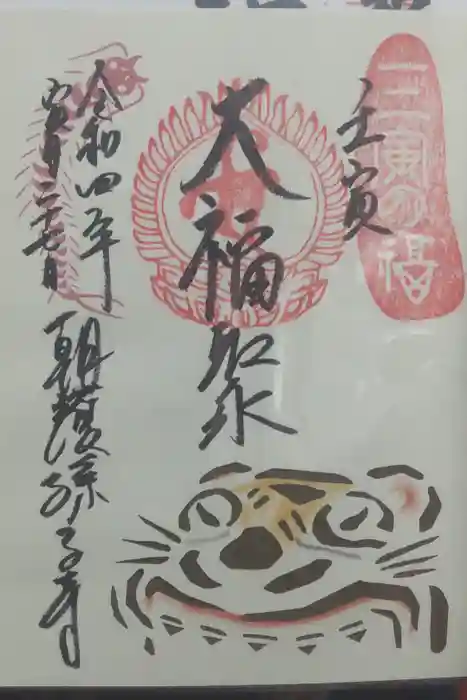 三寅の福
壬寅
大福聚
令和四年
寅月二十七日
朝護孫子寺